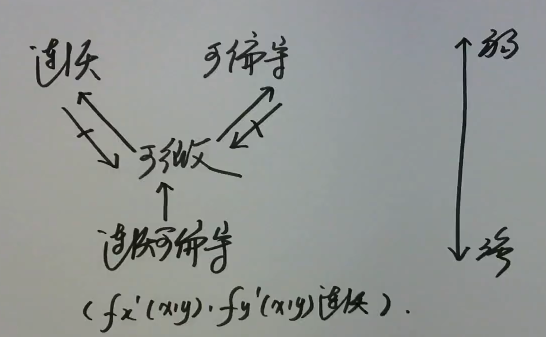 连续 可偏导 弱
可微
连续可偏导 强
(fx'(x,y), fy'(x,y)连续).